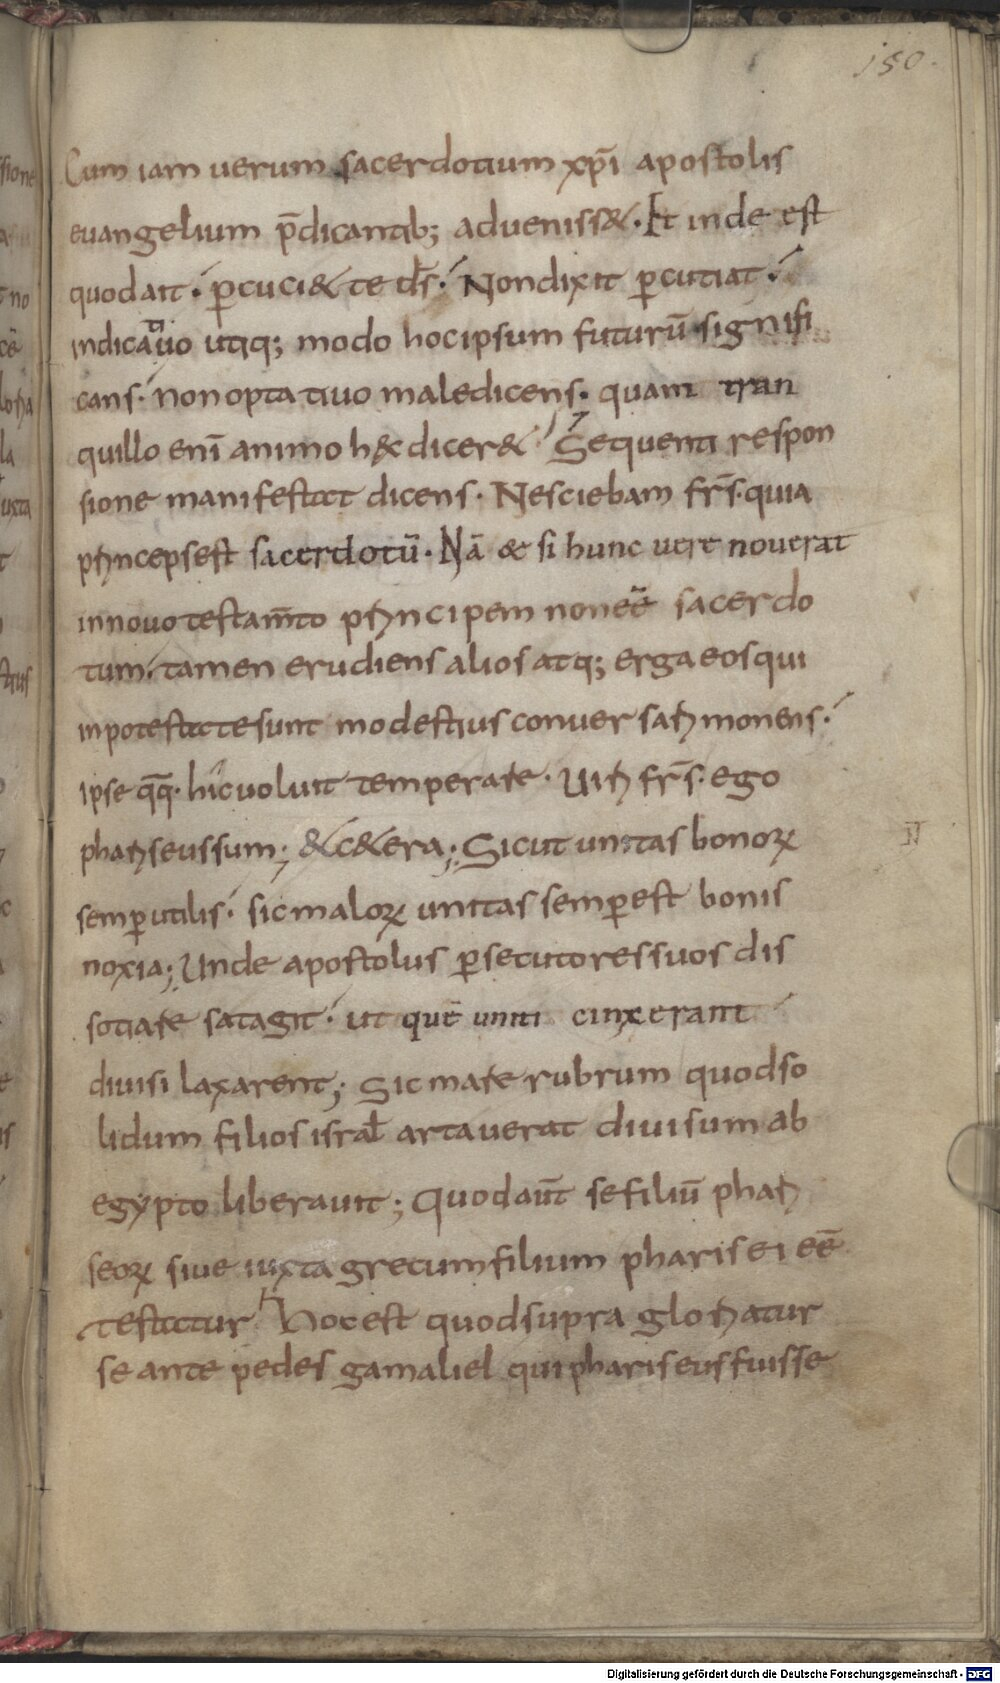 150.
Cum iam uerum sacerdotium xp̄i apostolis
euangelium p̄dicantib; aduenisset. Et inde est
quod ait. ꝑcuci& te d̄s. Non dixit ꝑcutiat.
indicatiuo utiq; modo hoc ipsum futurū signifi
cans. non optatiuo maledicens. quam tran
quillo eni̅ animo h&c dicer& Sequenti respon
sione manifestat dicens. Nesciebam fr̄s. quia
princeps est sacerdotū. Nā & si hunc uere nouerat
in nouo testam̄to principem non eē sacerdo
tum. tamen erudiens alios atq; erga eos qui
in potestate sunt modestius conuersari monens.
ipse q̄q. hic uoluit temperare. Uiri fr̄s. ego
phariseus sum; & c&era; Sicut unitas bonoꝝ
semꝑ utilis. sic maloꝝ unitas semꝑ est bonis
noxia; Unde apostolus ꝑsecutores suos dis
sotiare satagit. ut quē uniti cinxerant
diuisi laxarent; Sic mare rubrum quod so
lidum filios isral̄ artauerat diuisum ab
egypto liberauit; Quod aut̄ se filiū phari
seoꝝ siue iuxta grecum filium pharisei eē
testatur Hoc est quod supra gloriatur
se ante pedes gamaliel qui phariseus fuisse
Digitalisierung gefördert durch die Deutsche Forschungsgemeinschaft - DFG